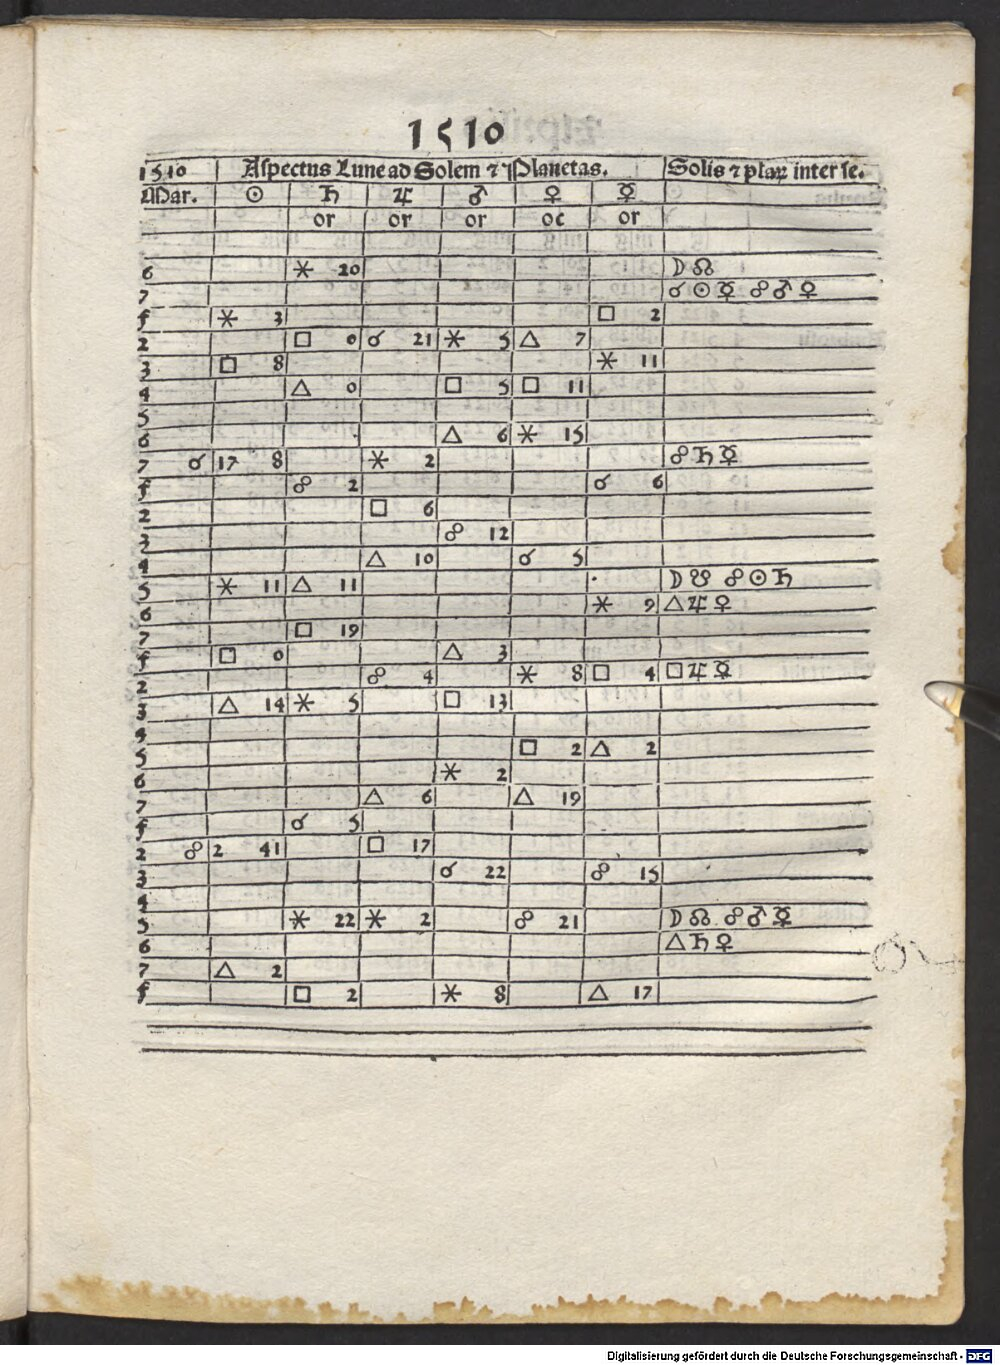 1510
1510 Aspectus Lune ad Solem ⁊ Planetas. Solis ⁊ plaꝝ inter se.
Mar. ☉ ♄ ♃ ♂ ♀ ☿
or or or oc or
6 ⚹ 20 ☽ ☊
7 ☌ ☉ ☿ ☍ ♂ ♀
f ⚹ 3 □ 2
2 □ 0 ☌ 21 ⚹ 5 △ 7
3 □ 8 ⚹ 11
4 △ 0 □ 5 □ 11
5
6 △ 6 ⚹ 15
7 ☌ 17 8 ⚹ 2 ☍ ♄ ☿
f ☍ 2 ☌ 6
2 □ 6
3 ☍ 12
4 △ 10 ☌ 5
5 ⚹ 11 △ 11 ☽ ☋ ☍ ☉ ♄
6 ⚹ 9 △ ♃ ♀
7 □ 19
f □ 0 △ 3
2 ☍ 4 ⚹ 8 □ 4 □ ♃ ☿
3 △ 14 ⚹ 5 □ 13
4
5 □ 2 △ 2
6 ⚹ 2
7 △ 6 △ 19
f ☌ 5
2 ☍ 2 41 □ 17
3 ☌ 22 ☍ 15
4
5 ⚹ 22 ⚹ 2 ☍ 21 ☽ ☊ ☍ ♂ ☿
6 △ ♄ ♀
7 △ 2
f □ 2 ⚹ 8 △ 17
Digitalisierung gefördert durch die Deutsche Forschungsgemeinschaft - DFG